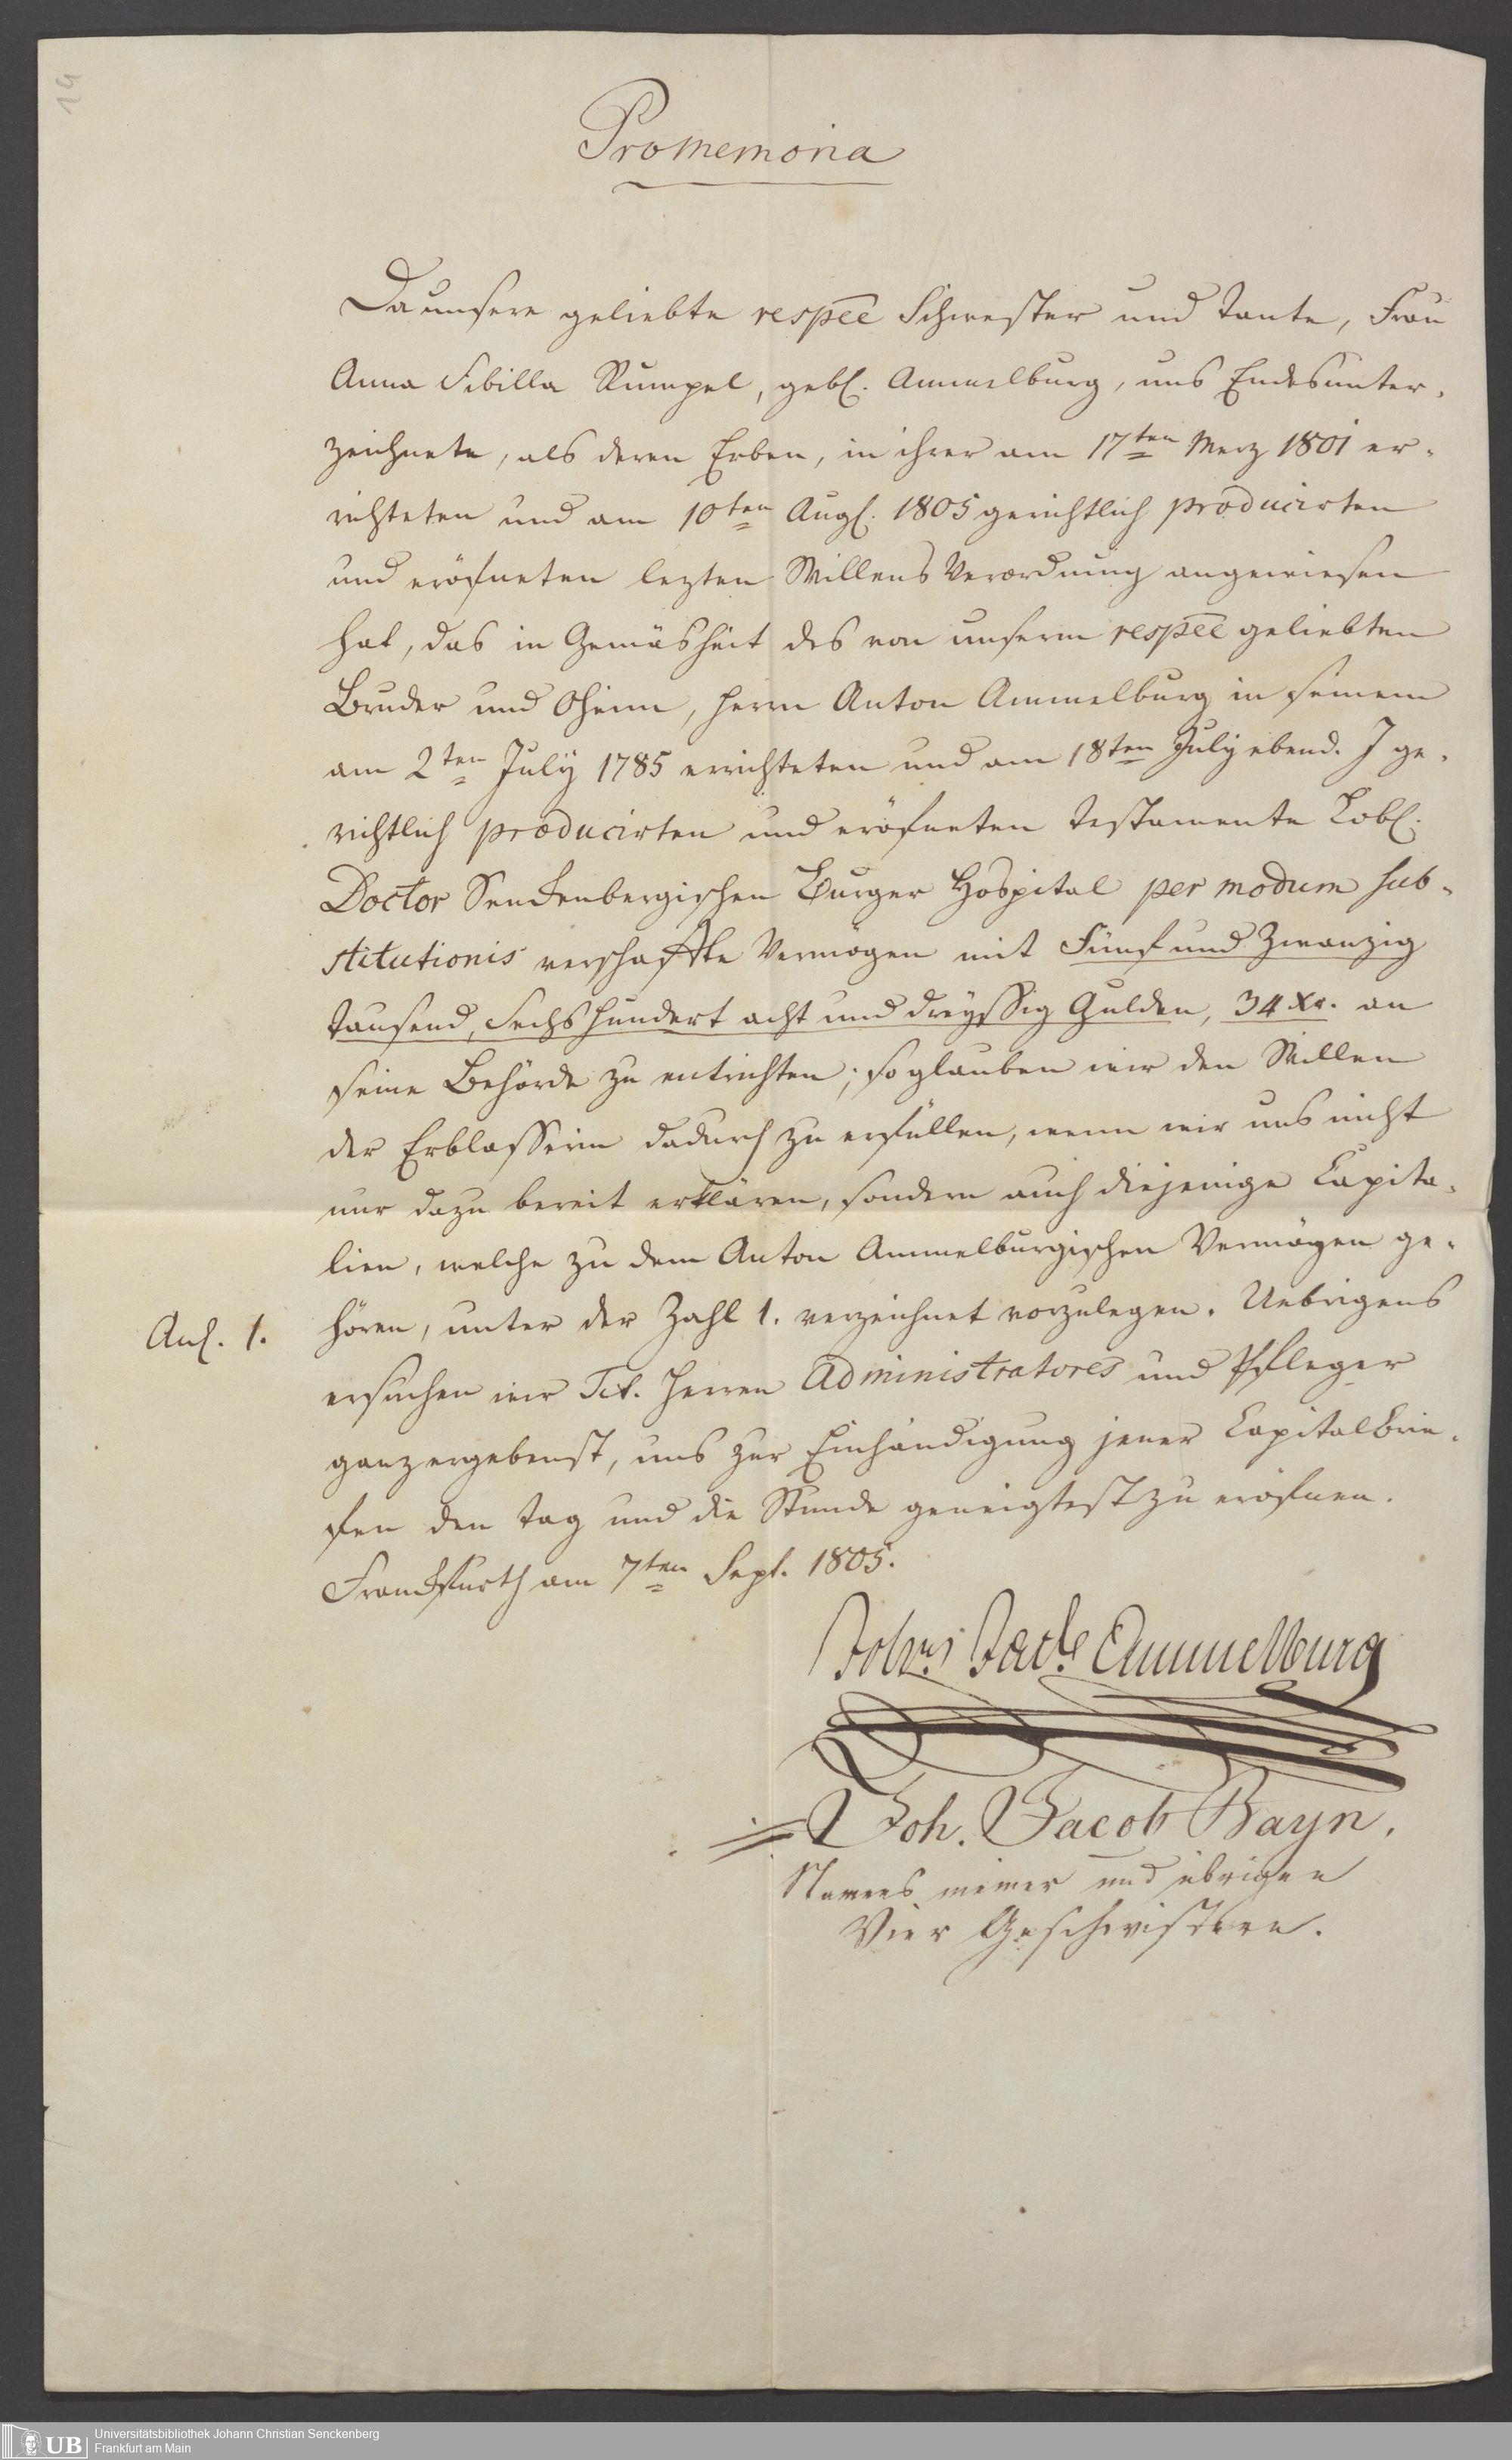 14
Promemoria
Da unsere geliebte respee Schwester und Tante, Frau
Anna Sibilla Rumpel, gebl. Ammelburg, uns Endesunter-
zeichnete, als deren Erben, in ihrer am 17ten Merz 1801 er-
richteten und am 10ten Augl. 1805 gerichtlich producirten
und eröfneten lezten Willens Verordnung angewiesen
hat, das in Gemäsheit des von unserm respee geliebten
Bruder und Oheim, Herrn Anton Ammelburg in seinem
am 2ten July 1785 errichteten und am 18ten July ebend. J ge-
richtlich producirten und eröfneten Testamente Lobl.
Doctor Senckenbergischen Burger Hospital per modum sub-
stitutionis verschaffte Vermögen mit Fünf und Zwanzig
tausend, Sechshundert acht und dreyssig Gulden, 34 Xr. an
seine Behörde zu entrichten; so glauben wir den Willen
der Erblasserin dadurch zu erfüllen, wenn wir uns nicht
nur dazu bereit erklären, sondern auch diejenige Capita-
lien, welche zu dem Anton Ammelburgischen Vermögen ge-
Anl. 1. hören, unter der Zahl 1. verzeichnet vorzulegen. Uebrigens
ersuchen wir Tit. Herren Administratores und Pfleger
ganz ergebenst, uns zur Einhändigung jener Capitalbrie-
fen den Tag und die Stunde geneigtest zu eröfnen.
Franckfurth am 7ten Sept. 1805.
Johs Jacb Ammelburg
Joh. Jacob Bayn.
Namens meiner und übrigen
Vier Geschwistern.
UB Universitätsbibliothek Johann Christian Senckenberg
Frankfurt am Main